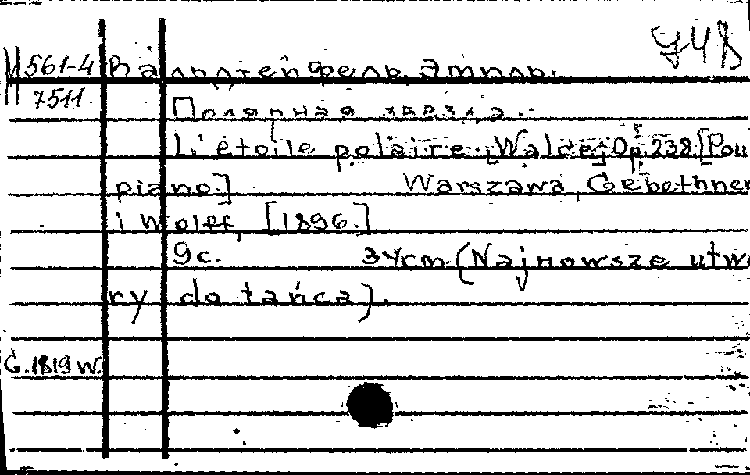 У48
М 561-4 Вальдтейфель, Эмиль.
7511 Полярная звезда. -
L'étoile polaire. [Walce] Op. 238. [Pour
piano.] Warszawa, Gebethner
i Wolff, [1896.]
9c. 34cm (Najnowsze utwo
ry do tańca).
G.1819 W.